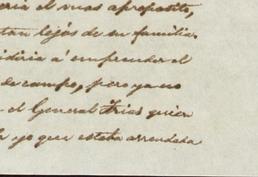 seria el mas aproposito,
tan lejos de su familia
idiria á emprender el
de campo, pero ya no
el General Frias quien
lo que estaba arrendada